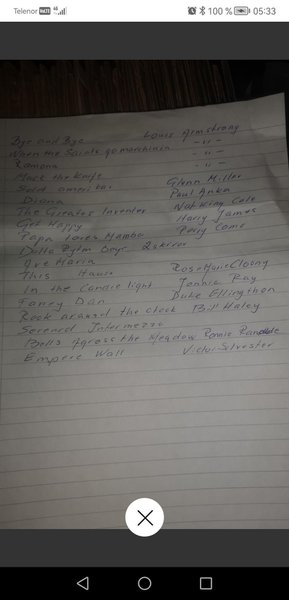 Telenor VoLTE 4G 100 % 05:33
Bye and Bye Louis Armstrong
When the Saints go marchinin -"-
Ramona -"-
Mack the Knife
Sold amerika Glenn Miller
Diana Paul Anka
The Greates Inventer Nat King Cole
Get Happy Harry James
Papa Loves Mambo Perry Como
Delta Rytm Boys 2 skivor
Ave Maria
This House RoseMarie Cloony
In the Candle light Jonnie Ray
Fancy Dan Duke Ellingthon
Rock around the clock Bill Haley
Serenad Intermezzo
Bells Across the Meadow Ronnie Ranalde
Empere Wall Victor Silvester